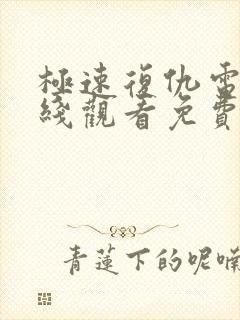 極速復仇電
綫觀看免費
青蓮下的呢喃